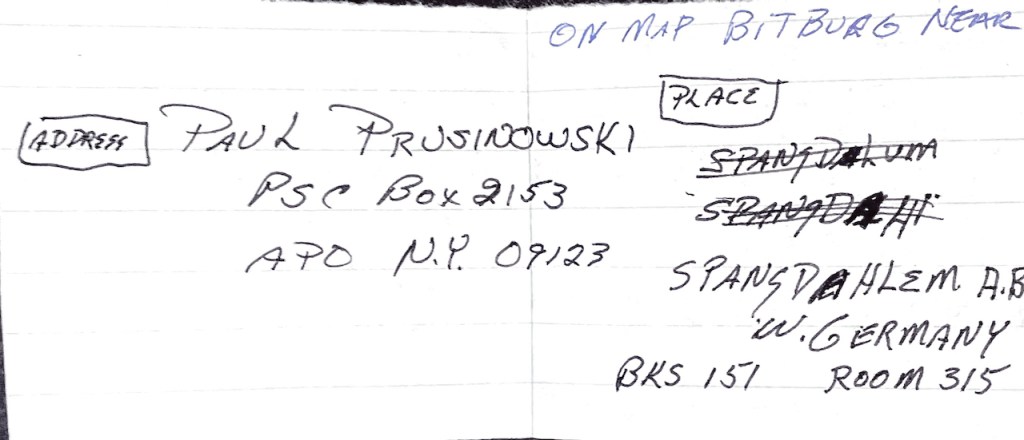 ON MAP BITBURG NEAR
PLACE
ADDRESS PAUL PRUSINOWSKI
PSC BOX 2153
APO N.Y. 09123
SPANGDALUM
SPANGDAHI
SPANGDAHLEM A.B
W. GERMANY
BKS 151 ROOM 315